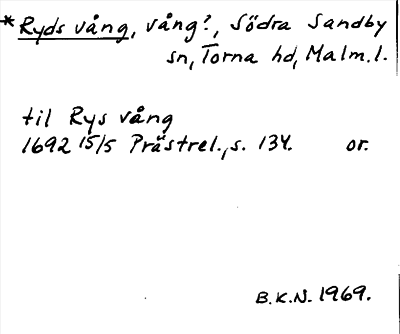 *Ryds vång, vång?, Södra Sandby
sn, Torna hd, Malm.l.
til Rys vång
1692 15/5 Prästrel., s. 134. or.
B.K.N. 1969.